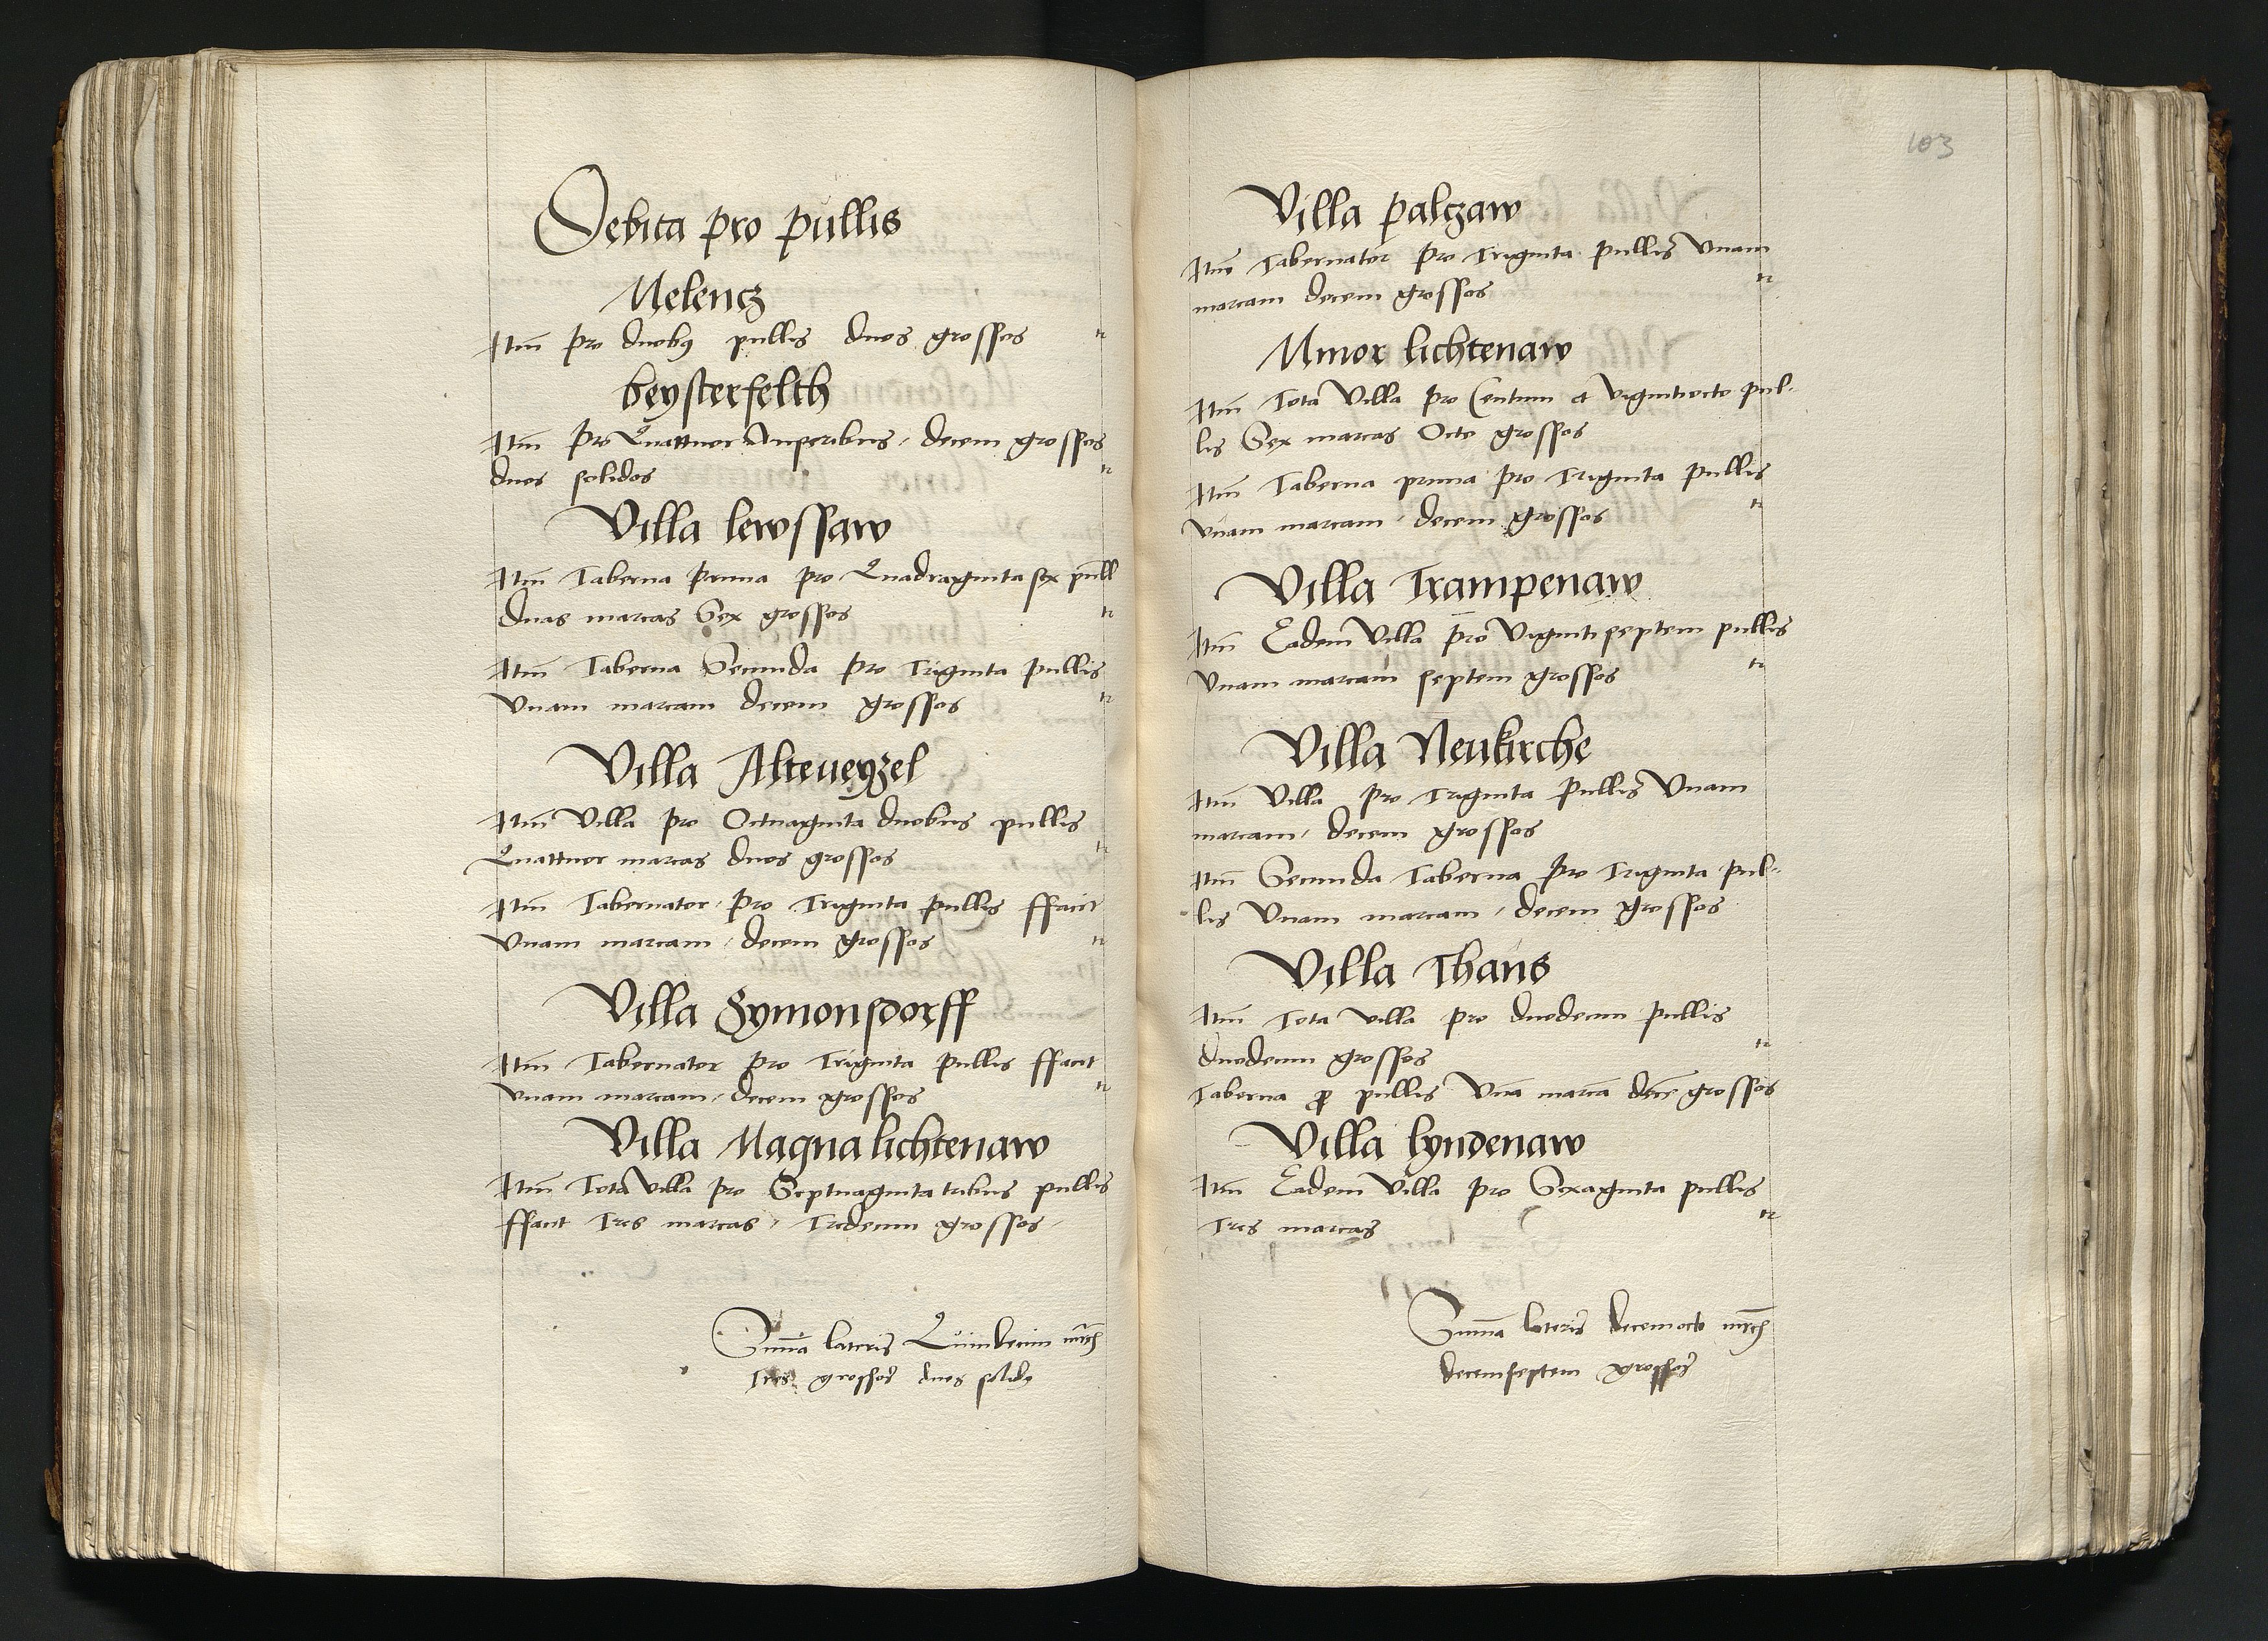 Debita pro pullis
Melencz
Itm̄ pro duobꝫ pullis duos grossos tr
beysterfelth
Itm̄ pro Quattuor Anseribus / decem grossos
duos solidos tr
Villa lewssaw
Itm̄ Taberna Prima pro Quadraginta sex pull
duas marcas Sex grossos tr
Itm̄ Taberna Secunda pro Triginta pullis
Vnam marcam decem grossos tr
Villa Alteueyzel
Itm̄ Villa pro Octuaginta duobus pullis
Quattuor marcas duos grossos tr
Itm̄ Tabernator / pro Triginta pullis ffacit
Vnam marcam / decem grossos tr
Villa Symonsdorff
Itm̄ Tabernator pro Triginta pullis ffacit
Vnam marcam / decem grossos tr
Villa Magna lichtenaw
Itm̄ Tota Villa pro Septuaginta tribus pullis
ffacit Tres marcas / Tredecim grossos /
Sum̄a lateris Quindecim mrch
Tres grossos duos solidꝫ
103
Villa palczaw
Itm̄ Tabernator pro Triginta pullis Vnam
marcam decem grossos tr
Minor lichtenaw
Itm̄ Tota Villa pro Centum et vigintiocto pul-
lis Sex marcas Octo grossos
Itm̄ Taberna prima pro Triginta pullis
Vnam marcam / decem grossos tr
Villa Trampenaw
Itm̄ Eadem Villa pro Viginti septem pullis
Vnam marcam septem grossos tr
Villa Neukirche
Itm̄ Villa pro Triginta pullis Vnam
marcam / decem grossos
Itm̄ Secunda Taberna pro Triginta pul-
lis Vnam marcam / decem grossos
Villa Thans
Itm̄ Tota villa pro duodecim pullis
duodecim grossos tr
Taberna ꝓ pullis Vnā marcā decē grossos
Villa lyndenaw
Itm̄ Eadem Villa pro Sexaginta pullis
Tres marcas tr
Sum̄a lateris decemocto mrch
decemseptem grossos